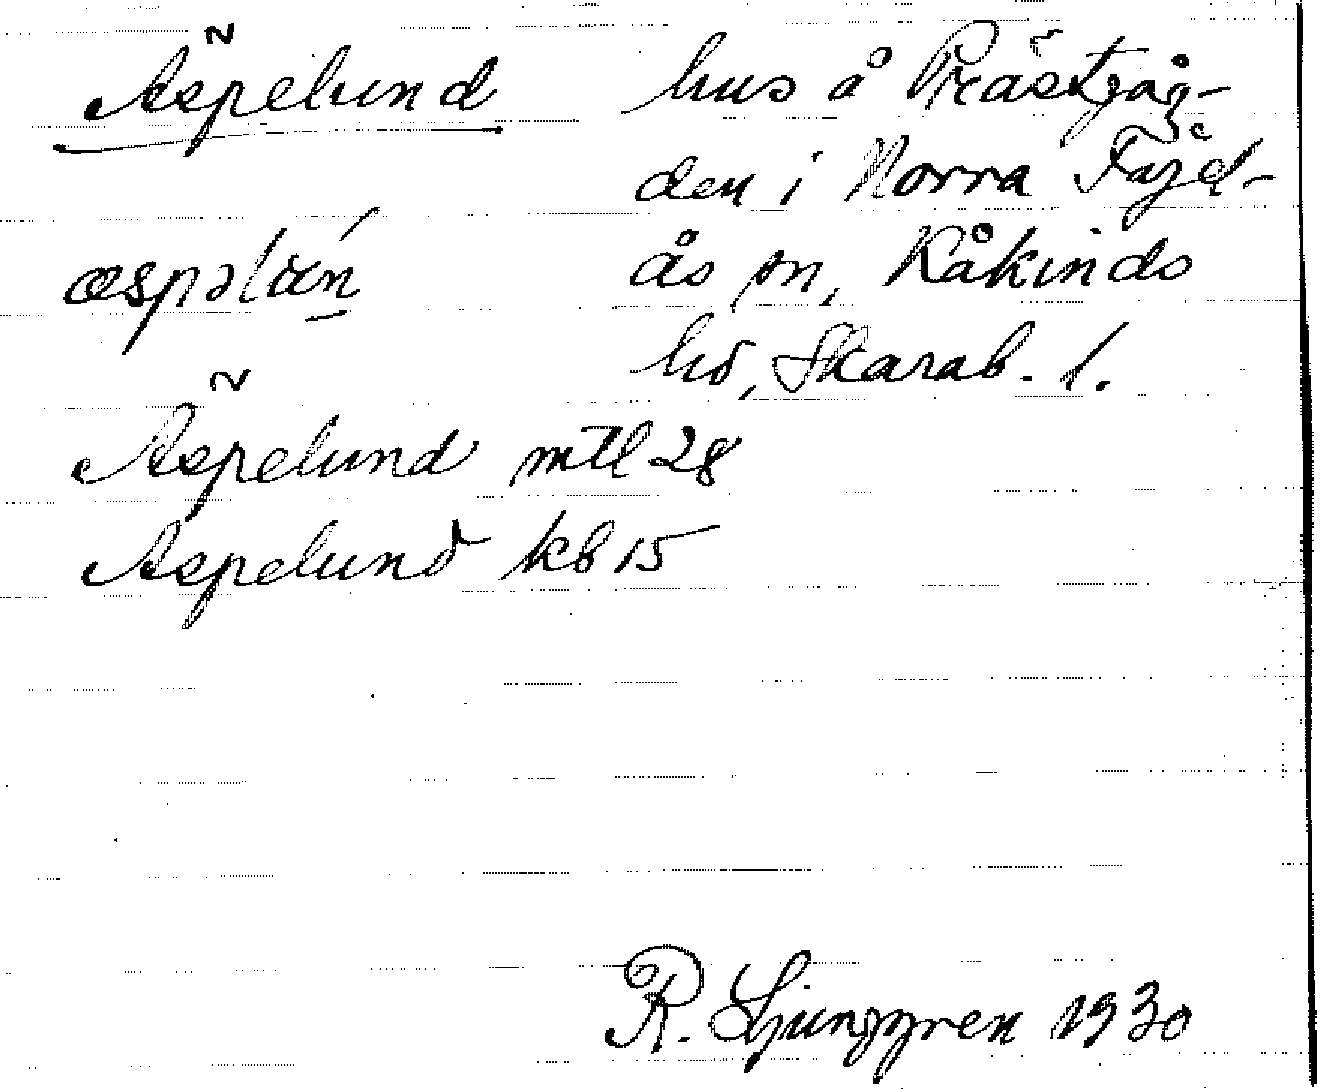 Äspelund hus å Prästgår-
den i Norra Fågel-
æspəlán ås sn, Kåkinds
hd, Skarab. l.
Äspelund mtl 28
Aspelund kb 15
R. Ljunggren 1930